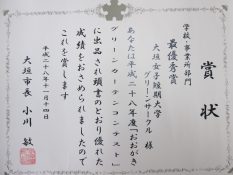 賞状
学校・事業所部門
最優秀賞
大垣女子短期大学
グリーンサークル 様
あなたは平成二十八年度「おおがき
グリーンカーテンコンテスト」
に出品され頭書のとおり優れた
成績をおさめられましたので
これを賞します
平成二十八年十一月十四日
大垣市長 小川 敏